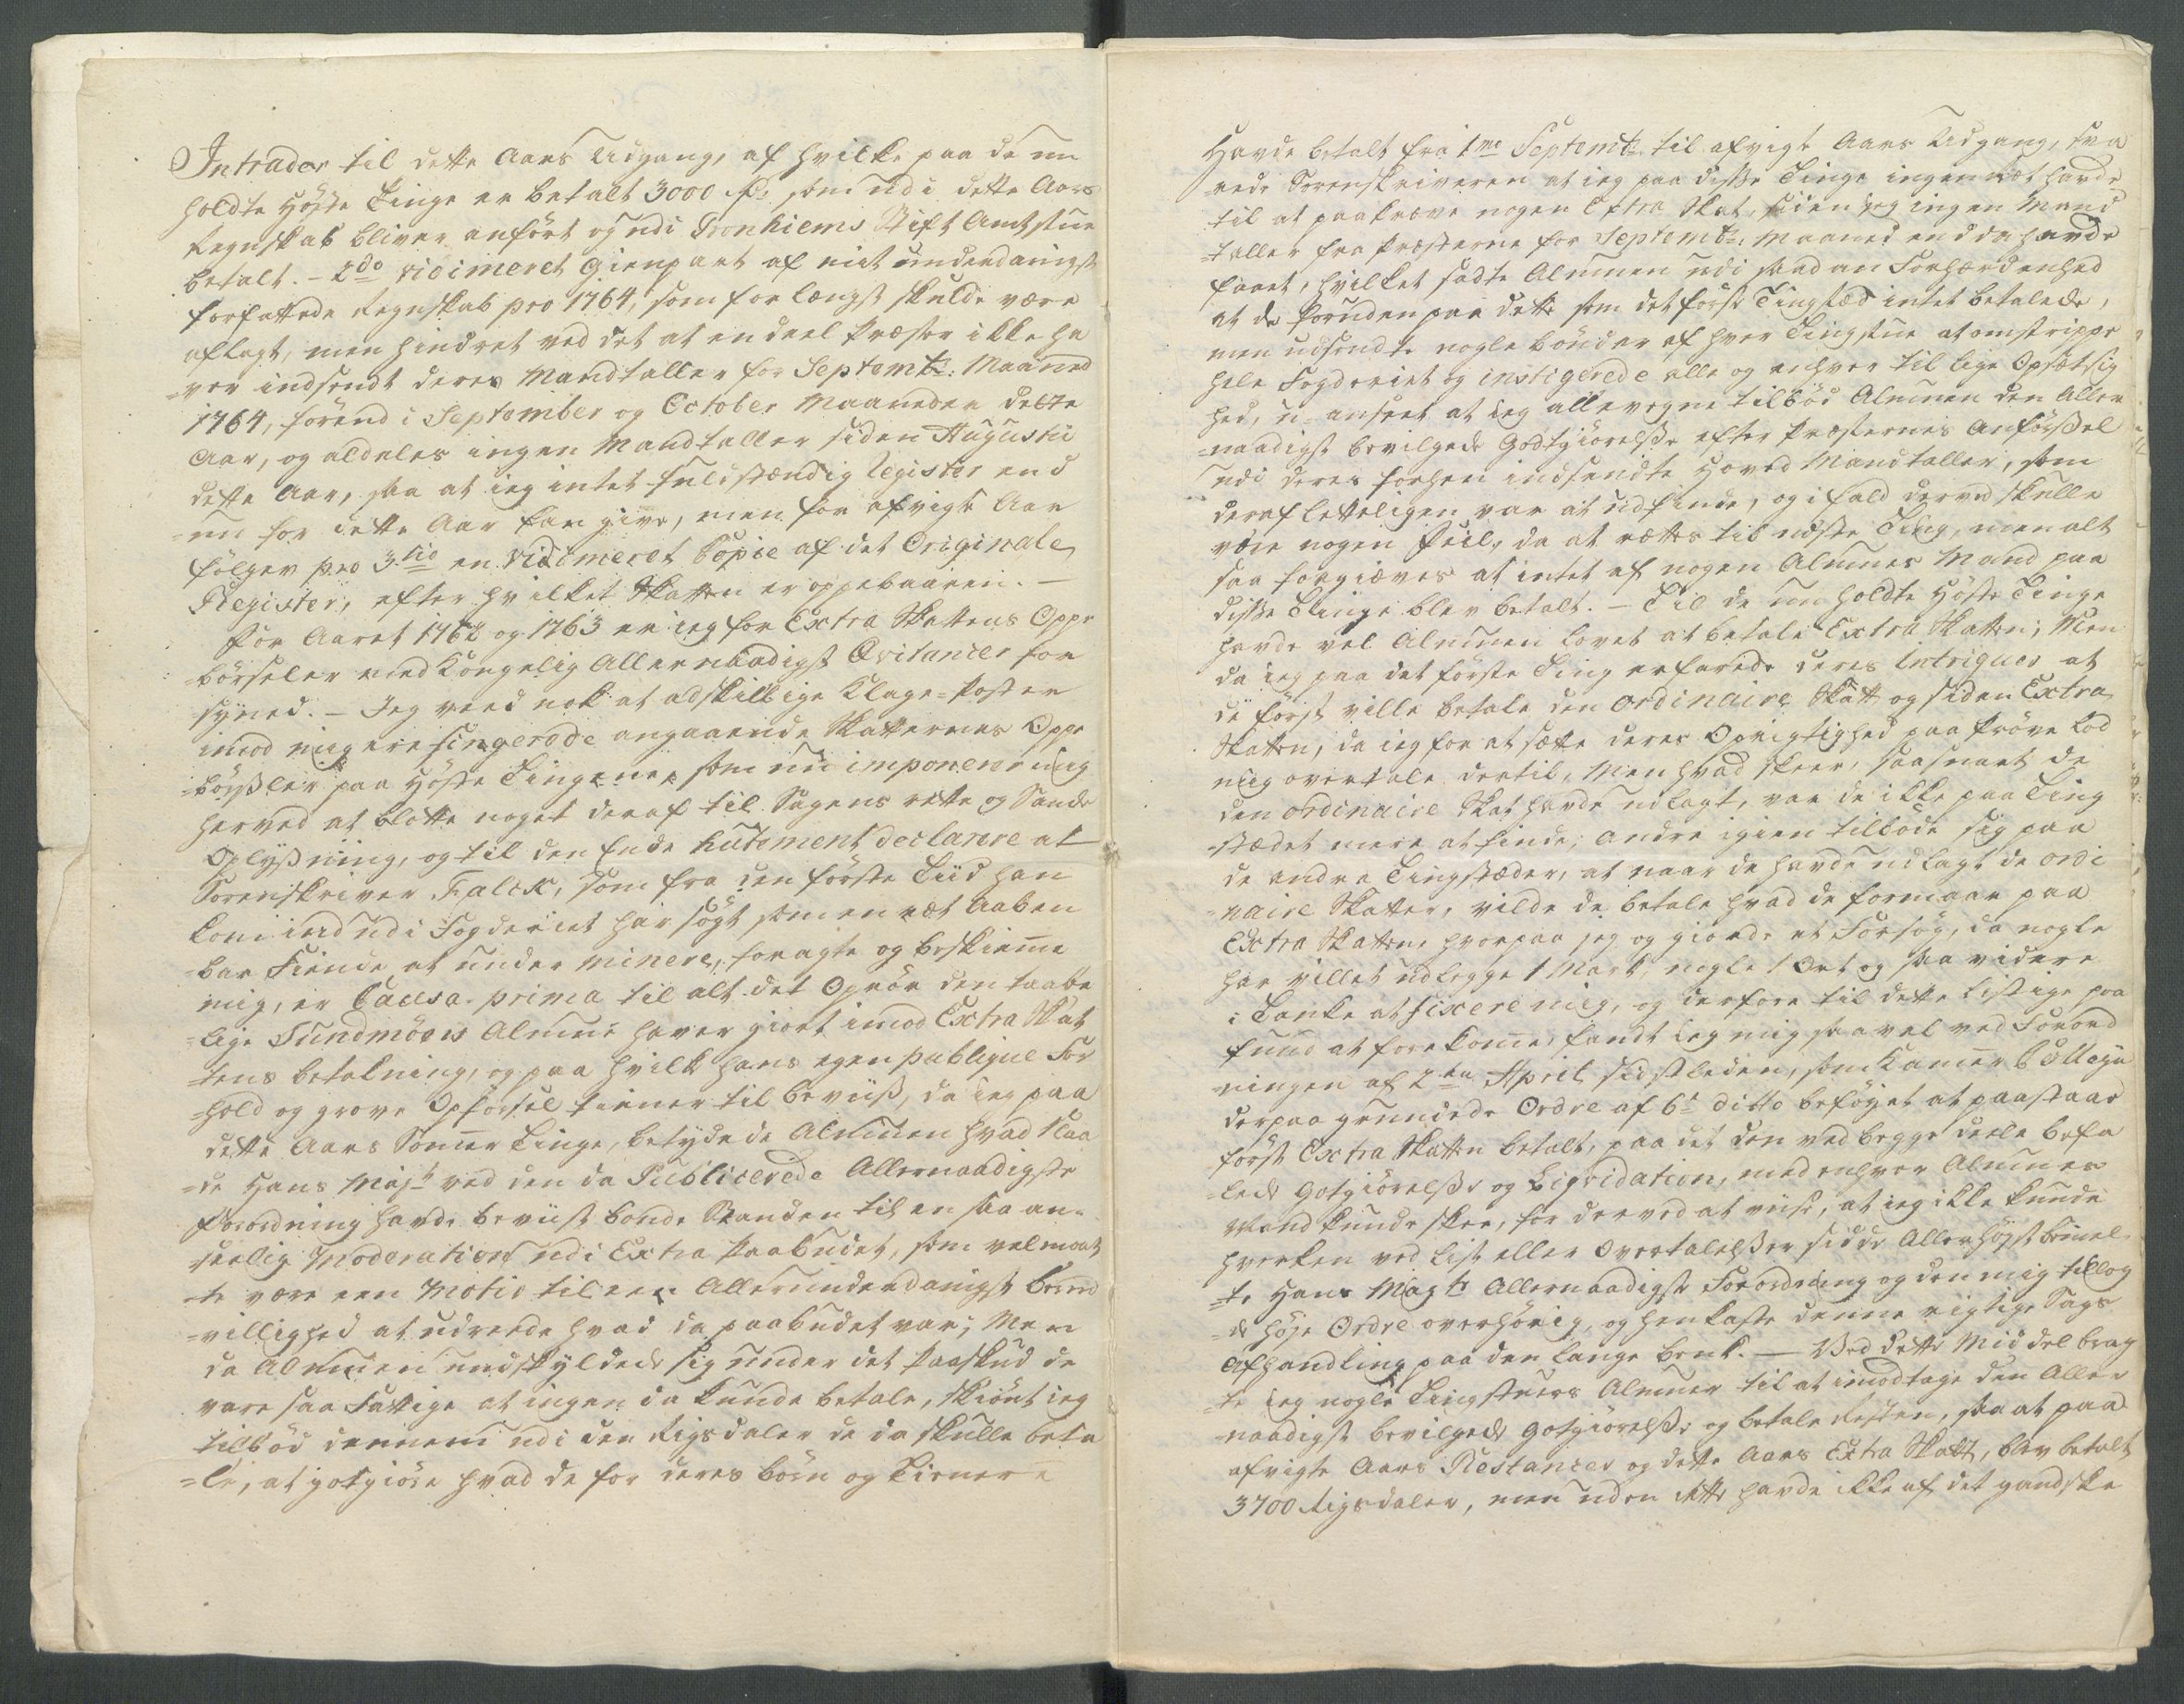 Intrader til dette Aars Udgang, af hvilke paa de nu
holdte Höste Tinge er betalt 3000 rd: som udi dette Aars
Regnskab bliver anfört og udi Tronhiems Stift Amtstue
betalt. - 2do vidimeret Gienpart af mit underdanigst
forfattede Regnskab pro 1764, som for længst skulde være
aflagt, men hindret ved det at en deel Præster ikke ha
=ver indsendt deres Mandtaller for Septembr: Maaned
1764, förend i September og October Maaneder dette
Aar, og aldeles ingen Mandtaller siden Augustii
dette Aar, saa at ieg intet fuldstændig Register end
=nu for dette Aar kan give, men for afvigte Aar
fölger pro 3tio en vidimeret Copie af det Originale
Register, efter hvilket Skatten er oppebaaren. —
For Aaret 1762 og 1763 er ieg for Extra Skattens Oppe
=börseler med Kongelig Allernaadigst Qvitancer for
=syned. — Jeg veed nok at adskillige Klage-Poster
imod mig ere fingerede angaaende Skatternes Oppe
=börssler paa Höste Tingene, som nu imponerer mig
herved at blotte noget deraf til Sagens rette og Sande
Oplyssning, og til den Ende hütement declarere at
Sorenskriver Falck, som fra den förste Tiid han
kom ind udi Fogderiet har sögt som en ræt Aaben
=bar Fiende at under minere, foragte og beskiemme
mig, er Causa prima til alt det Oprör den taabe
=lige Sundmöers Almue haver giort imod Extra Skat
=tens betalning, og paa hvilk hans egen publique For
=hold og grove Opförsel tiener til beviiss, da ieg paa
dette Aars Sommer Tinge, betydede Almuen hvad Naa
=de Hans Majt ved den da Publicerede Allernaadigste
Forordning havde beviist bonde Standen til en saa an=
seelig Moderation udi Extra Paabudet, som vel maat
=te være een Motiv til een Allerunderdanigst bered
=villighed at udreede hvad da paabudet var; Men
da Almuen undskyldede sig under det Paaskud de
vare saa Fattige at ingen da kunde betale, skiönt ieg
tilböd dennem udi den Rigsdaler de da skulle beta
=le, at gotgiöre hvad de for deres börn og Tienere
Havde betalt fra 1me Septembr. til afvigte Aars Udgang, sva
rede Sorenskriveren at ieg paa disse Tinge ingen ræt havde
til at paakræve nogen Extra Skat, siden ieg ingen Mand
=taller fra Præsterne for Septembr. Maaned endda havde
faaet, hvilket sadte Almuen udi saadan Forhærdenhed
at de foruden paa dette som det förste Tingstæd intet betalede,
men udsendte nogle bönder af hver Tingstue at omstrippe
hele Fogderiet og instigerede alle og enhver til lige Opsætsig
hed, u-anseet at ieg allevegne tilböd Almuen den Aller
=naadigst bevilgede Godtgiörelsse efter Præsternes Anförssel
udi deres forhen indsendte Hoved Mandtaller, som
deraf letteligen var at udfinde, og i fald derved skulle
være nogen Feil, da at rættes til næste Ting, men alt
saa forgiæves at intet af nogen Almues Mand paa
disse Tinge blev betalt. — Til de nu holdte Höste Tinge
havde vel Almuen lovet at betale Extra Skatten; Men
da ieg paa det förste Ting erfarede deres Intriguer at
de först ville betale den ordinaire Skatt og siden Extra
Skatten, da ieg for at sætte deres Oprigtighed paa Pröve lod
mig overtale dertil, Men hvad skeer, saasnart de
den ordinaire Skat havde udlagt, var de ikke paa Ting
=stædet mere at finde; andre igien tilböde sig paa
de andre Tingstæder, at naar de havde udlagt de ordi
=naire Skatter, vilde de betale hvad de formaar paa
Extra Skatten, hvorpaa jeg og giorde et Forsög, da nogle
har villet udlegge 1 Mark, nogle 1 Ort og saa videre
i Tanke at fixere mig, og derfore til dette listige paa
fund at forekomme, fandt ieg mig saavel ved Forord
=ningen af 2den April sidstleden, som Kammer Collegii
derpaa grundede Ordre af 6te ditto beföyet at paastaae
först Extra Skatten betalt, paa det den ved begge deele befa
=lede Gotgiörelsse og Liqvidation, med enhver Almues
Mand kunde skee, for derved at viise, at ieg ikke kunde
hverken ved List eller Overtalelsser sidde Allerhöyst bemel
=te Hans Majts Allernaadigste Forordning og den mig tillag
=de höje Ordre overhörig, og henkaste denne vigtige Sags
Afhandling paa den lange bænk. — Ved dette Middel brag
=te ieg nogle Tingstuers Almuer til at imodtage den Aller
=naadigst bevilgede Gotgiörelsse og betale Resten, saa at paa
afvigte Aars Restancer og dette Aars Extra Skatt, blev betalt
3700 Rigsdaler, men uden dette havde ikke af det gandske